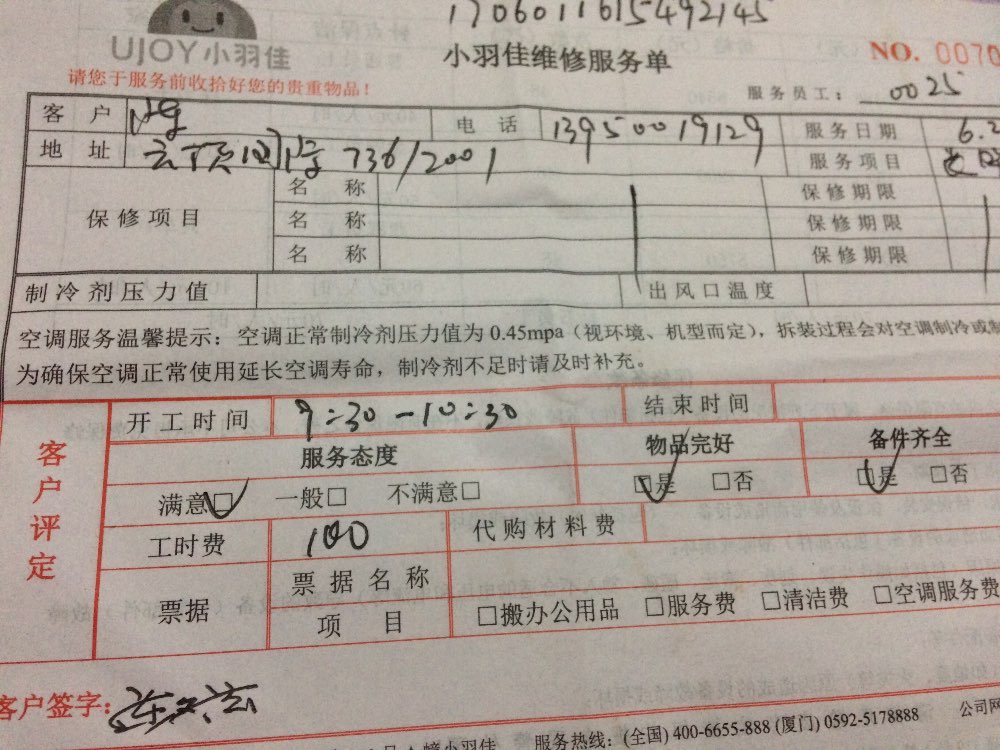 1706011615492145
UJOY小羽佳
小羽佳维修服务单
NO. 0070
请您于服务前收拾好您的贵重物品！
服务员工： 0025
客 户 电 话 13950019129 服务日期 6.2
地 址 736/2001 服务项目
保修项目
名 称 保修期限
名 称 保修期限
名 称 保修期限
制冷剂压力值 出风口温度
空调服务温馨提示：空调正常制冷剂压力值为 0.45mpa（视环境、机型而定），拆装过程会对空调制冷或制
为确保空调正常使用延长空调寿命，制冷剂不足时请及时补充。
客户评定
开工时间 9:30-10:30 结束时间
服务态度 物品完好 备件齐全
满意□ 一般□ 不满意□ □是 □否 □是 □否
工时费 100 代购材料费
票据 票据名称
项 目 □搬办公用品 □服务费 □清洁费 □空调服务费
客户签字：
小羽佳 服务热线：(全国) 400-6655-888 (厦门) 0592-5178888 公司网